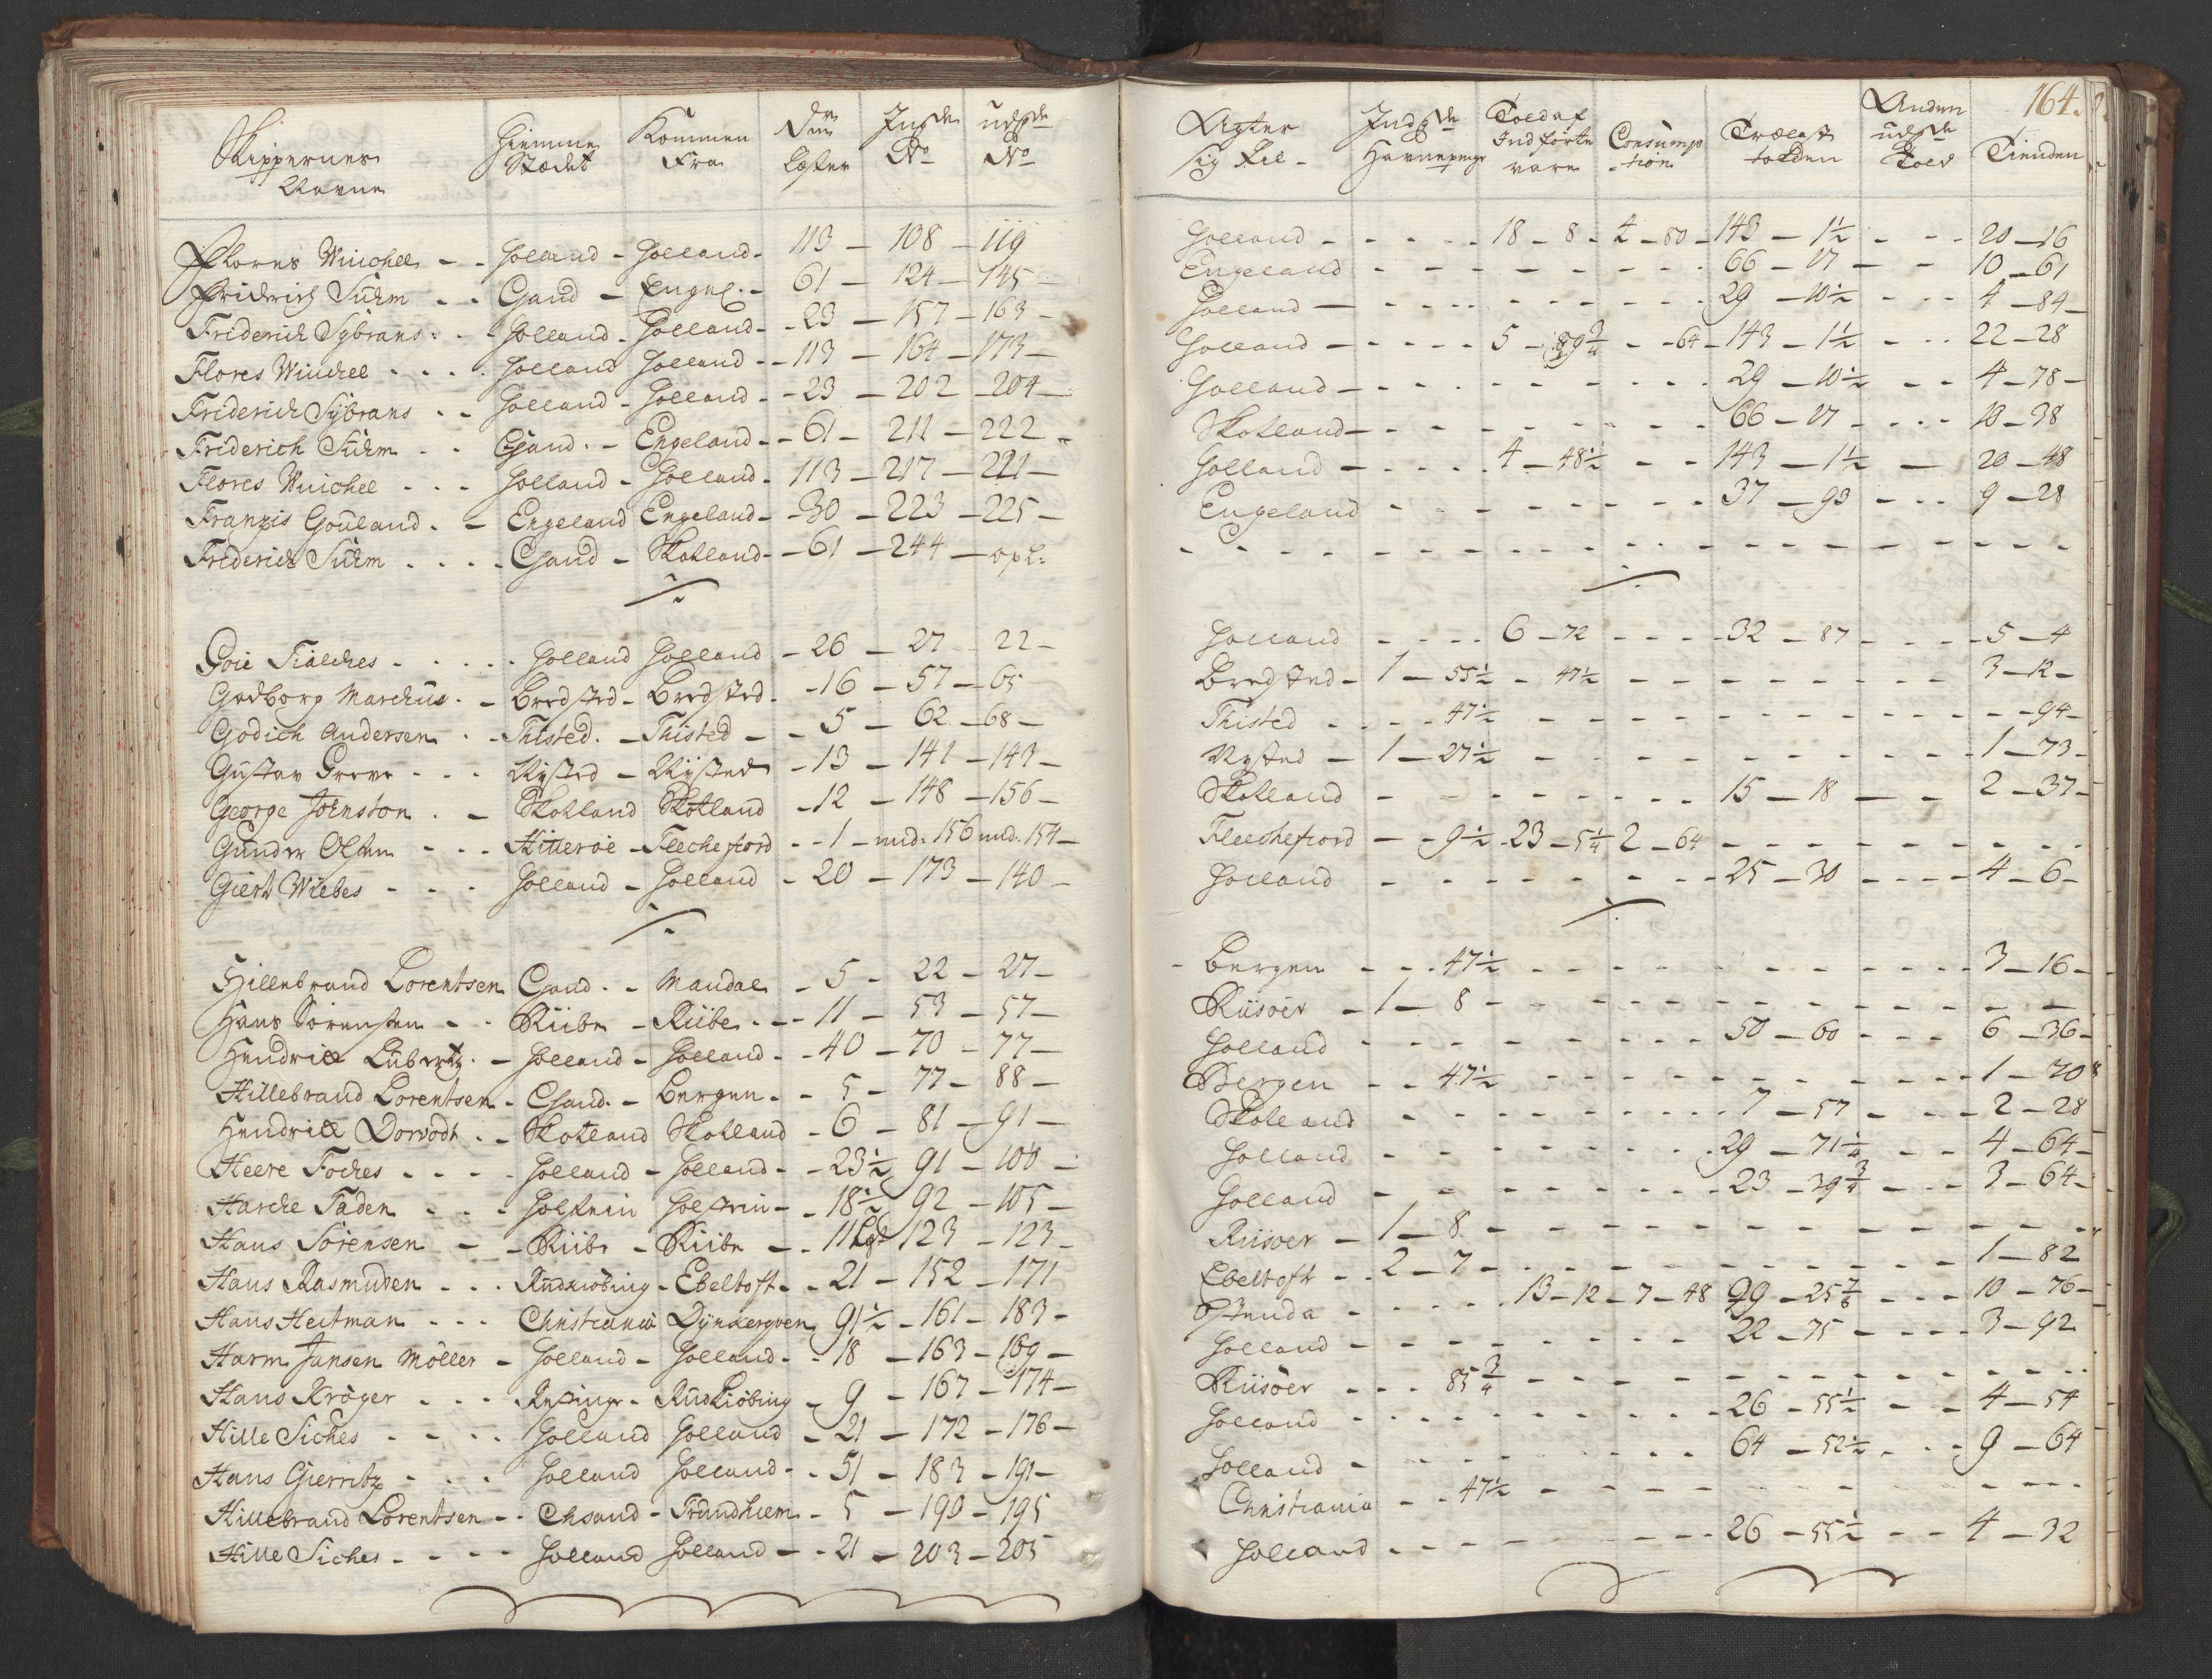 Skippernes Navne | Hiemme Stædet | Kommen Fra | Dr: Læster | Indg: No | udg: No
Flores Winchel - - Holland - Holland - 113 - 108 - 119
Friderich Suhm - - Chand - Engel. - 61 - 124 - 145 -
Friderich Sybrans - - Holland - Holland - 23 - 157 - 163 -
Flores Winchel - - - - Holland Holland - 113 - 164 - 173 -
Friderich Sybrans - - Holland - Holland - 23 - 202 - 204 -
Friderich Suhm - - Chand. - Engeland - 61 - 211 - 222 -
Flores Winchel - - - Holland - Holland - 113 - 217 - 221 -
Franzis Gouland - - Engeland Engeland - 30 - 223 - 225 -
Friderich Suhm - - - - Chand - Skotland - 61 - 244 - opl:
Goie Tialches - - - - - Holland Holland - 26 - 27 - 22 -
Gadborg Marchus - - Bredsted - Bredsted - 16 - 57 - 65
Godich Andersen - - Thisted. - Thisted - - 5 - 62 - 68 -
Gustav Greve - - - Nysted - Nysted - 13 - 141 - 143 -
George Johnston - - Skotland Skotland - 12 - 148 - 156 -
Gunder Olsen - - - Hitterøe - Flechefiord - - 1 - ind. 156 ind. 154 -
Giert Wiebes - - - Holland - Holland - 20 - 173 - 140 -
Hillebrand Lorentsen Chand. - Mandal - 5 - 22 - 27 -
Hans Sørensen - - Riibe - Riibe - - 11 - 53 - 57 -
Hendrich Lubertz. - Holland - Holland - 40 - 70 - 77 -
Hillebrand Lorentsen - Chand. - Bergen - - 5 - 77 - 88 -
Hendrich Dorvodt - - Skotland Skotland - 6 - 81 - 91 -
Heere Foches - - - - Holland - Holland - - 23½ 91 - 100 -
Harche Taden - - - Holstein Holstein - - 18½ 92 - 105 -
Hans Sørensen - - Riibe - Riibe - - 11 123 - 123 -
Hans Rasmusen - - - Rudkiøbing - Ebeltoft - - 21 - 152 - 171
Hans Heitman - - - Christiania Dynkerqven 91½ - 161 - 183 -
Harm Jansen Møller - Holland - Holland - - 18 - 163 - 169 -
Hans Krøger - - - - Rudkiøbing - 9 - 167 - 174 -
Hille Siches - - - - Holland Holland - 21 - 172 - 176 -
Hans Gierritz - - - Holland Holland - - 51 - 183 - 191 -
Hillebrand Lorentsen - - Chsand - Trundhiem - 5 - 190 - 195
Hille Siches - - - - Holland Holland - - 21 - 203 - 205
164.
Agter sig til - | Indg: Havnepenge | Told af Indførte vare | Consumption | Trælast tolden | Anden udg: Told | Tienden
Holland - - - - - 18 - 8 - 4 - 80 - 143 - 1½ - - - 20 - 16
Engeland - - - - - - - - 66 - 17 - - 10 - 61
Holland - - - - - - - - 29 - 10½ - - - 4 - 84 -
Holland - - - - - 5 - 89¾ - - 64 - 143 - 1½ - - - 22 - 28
Holland - - - - - - - - - 29 - 10½ - - 4 - 78 -
Skotland - - - - - - - - 66 - 17 - - - - 10 - 38
Holland - - - - 4 - 48½ - - 143 - 1½ - 20 - 48
Engeland - - - - - - - - 37 - 93 - - - 9 - 28
Holland - - - - 6 - 72 - - - - 32 - 87 - - - - 5 - 4
Bredsted - 1 - 55½ - 47½ - - - - - - - - - 3 - 12 -
Thisted - - - - 47½ - - - - - - - - - - - 94 -
Nysted - 1 - 27½ - - - - - - - - - - - 1 - 73 -
Skotland - - - - - - - - 15 - 18 - - 2 - 37 -
Fleechefiord - - 9½ - 23 - 5¼ 2 - 64 - - - - - - - -
Holland - - - - - - - - 25 - 30 - - - - 4 - 6 -
- Bergen - - - 47½ - - - - - - - - - - - 3 - 16 -
Riisøer - 1 - 8 - - - - - - - - - - - - -
Holland - - - - - - - - - 50 - 60 - - - 6 - 36 -
Bergen - - 47½ - - - - - - - - - - - 1 - 70
Skotland - - - - - - - - - 7 - 57 - - - - 2 - 28
Holland - - - - - - - - - 29 - 71¼ - - 4 - 64 -
Holland - - - - - - - - 23 - 39¾ - - - 3 - 64 -
Riisøer - 1 - 8. - - - - - - - - - - - - -
Ebeltoft - - 2 - 7 - - - - - - - - - - - 1 - 82
Ostende - - - - - 13 - 12 - 7 - 48 99 - 25⅞ - - - 10 - 76 -
Holland - - - - - - - - 22 - 75 - - - - 3 - 92
Riisøer - - - 85¾ - - - - - - - - - - - -
Holland - - - - - - - - - 26 - 55½ - - 4 - 54
Holland - - - - - - - - 64 - 52½ - - - 9 - 64
Christiania - - 47½ - - - - - - - - - - -
Holland - - - - - - - - - 26 - 55½ - - 4 - 32